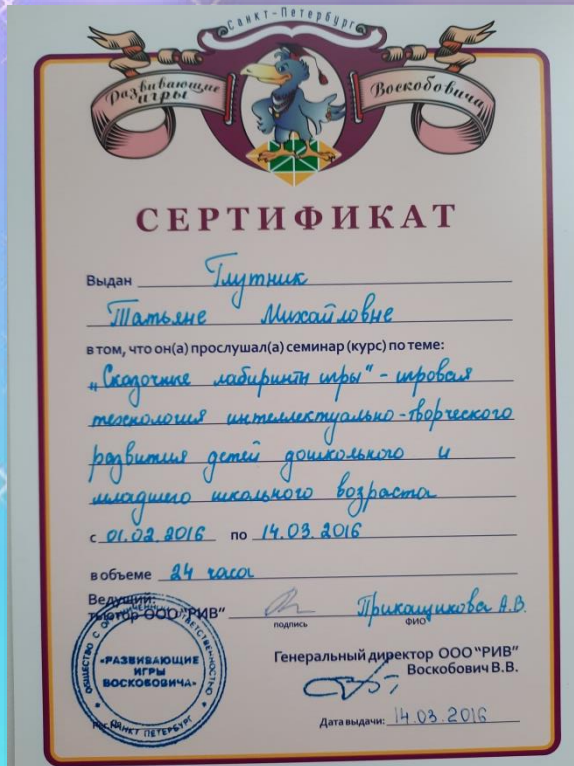 Санкт-Петербург
Развивающие игры Воскобовича
СЕРТИФИКАТ
Выдан Глутник
Татьяне Михайловне
в том, что он(а) прослушал(а) семинар (курс) по теме:
„Сказочные лабиринты игры" - игровая
технология интеллектуально-творческого
развития детей дошкольного и
младшего школьного возраста
с 01.02.2016 по 14.03.2016
в объеме 24 часа
Ведущий:
тьютор ООО "РИВ" Прикащикова А.В.
подпись ФИО
Генеральный директор ООО "РИВ"
Воскобович В.В.
Дата выдачи: 14.03.2016
ОБЩЕСТВО С ОГРАНИЧЕННОЙ ОТВЕТСТВЕННОСТЬЮ
«РАЗВИВАЮЩИЕ
ИГРЫ
ВОСКОБОВИЧА»
САНКТ ПЕТЕРБУРГ